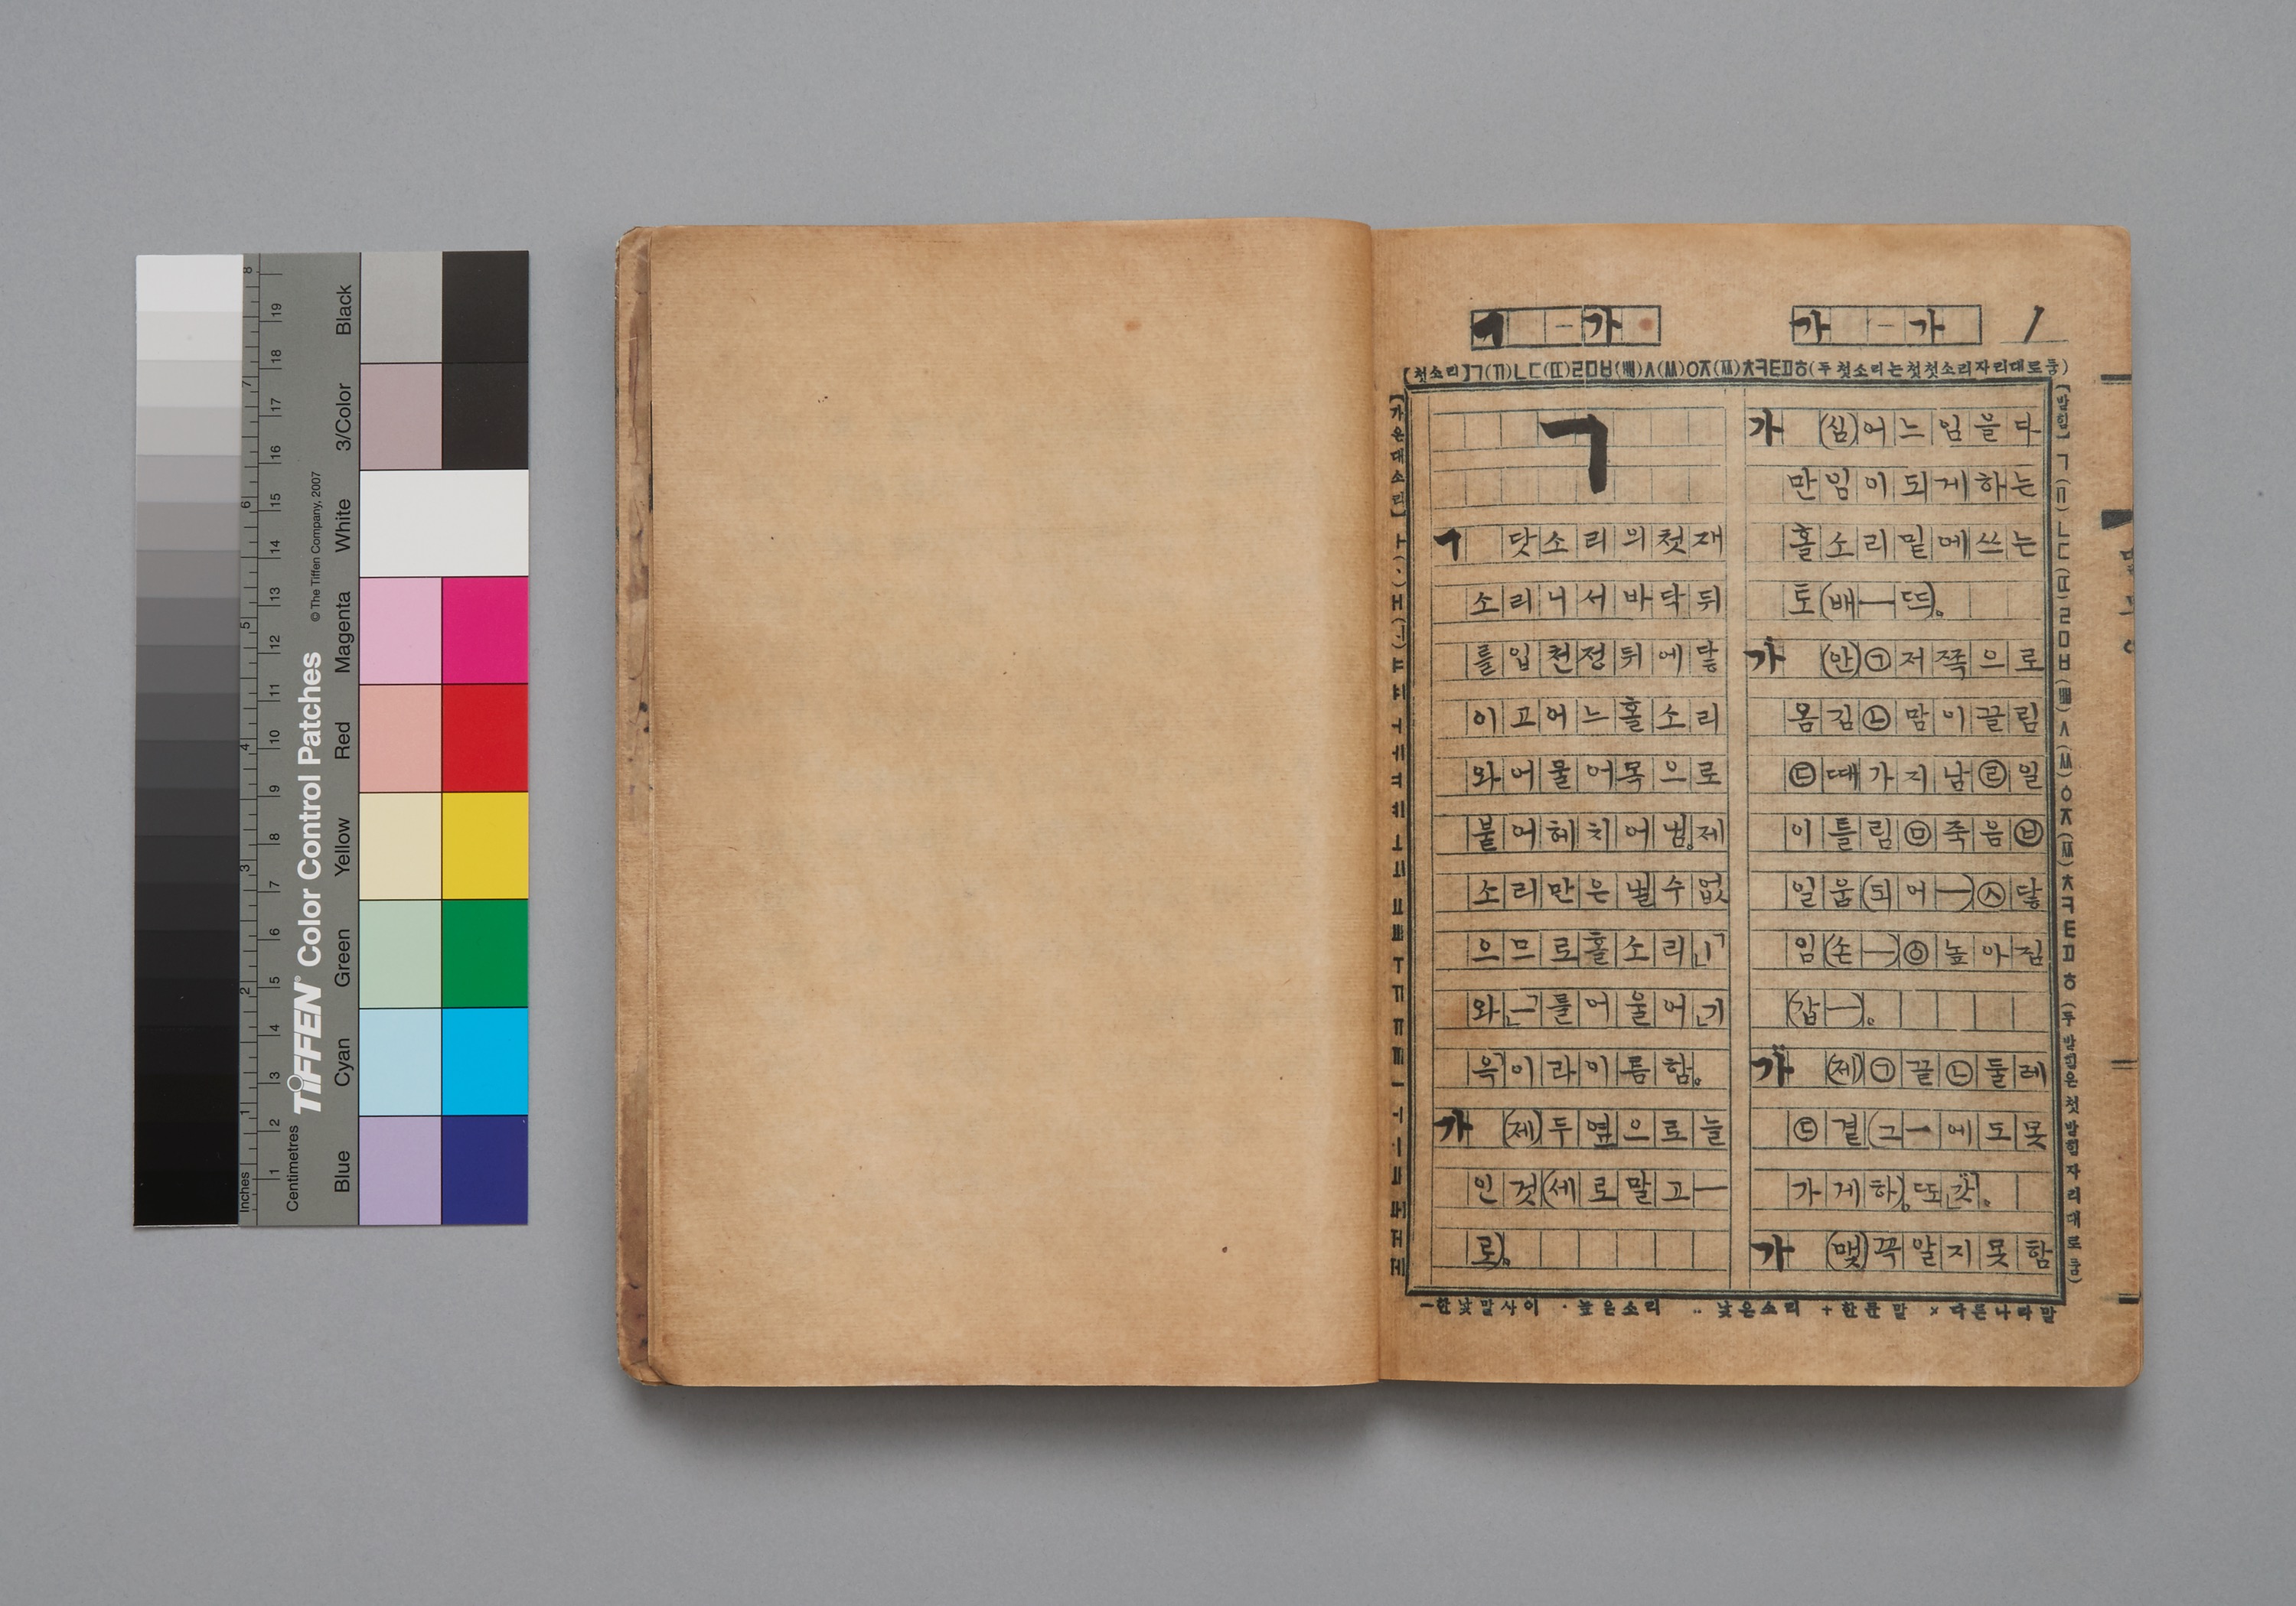 Black
3/Color
White
Magenta
Red
Yellow
Green
Cyan
Blue
© The Tiffen Company, 2007
TIFFEN® Color Control Patches
Centimetres
Inches
ㄱ — 가
가 — 가
1
【첫소리】ㄱ(ㄲ)ㄴㄷ(ㄸ)ㄹㅁㅂ(ㅃ)ㅅ(ㅆ)ㅇㅈ(ㅉ)ㅊㅋㅌㅍㅎ(두첫소리는첫첫소리자리대로둠)
【가온대소리】
ㄱ
ㄱ 닷소리의첫재
소리니서바닥뒤
를입천정뒤에닿
이고어느홀소리
와어울어목으로
붙어헤치어냄。제
소리만은낼수없
으므로홀소리「ㅣ」
와「ㅡ」를어울어「기
윽」이라이름함。
가 (제)두옆으로늘
인것(세로말고—
로)。
가 (심)어느임을다
만임이되게하는
홀소리밑에쓰는
토(배—뜨)。
가 (안)㉠저쪽으로
옴김㉡맘이끌림
㉢때가지남㉣일
이틀림㉤죽음㉥
일움(되어—)㉦닿
임(손—)㉧높아짐
(갑—)。
가 (제)㉠끝㉡둘레
㉢곁(그—에도못
가게하)。또「갓」。
가 (맺)꼭알지못함
【받힘】ㄱ(ㄲ)ㄴㄷ(ㄸ)ㄹㅁㅂ(ㅃ)ㅅ(ㅆ)ㅇㅈ(ㅉ)ㅊㅋㅌㅍㅎ(두받힘은첫받힘자리대로둠)
—한낱말사이 ·높은소리 ··낮은소리 +한문말 ×다른나라말